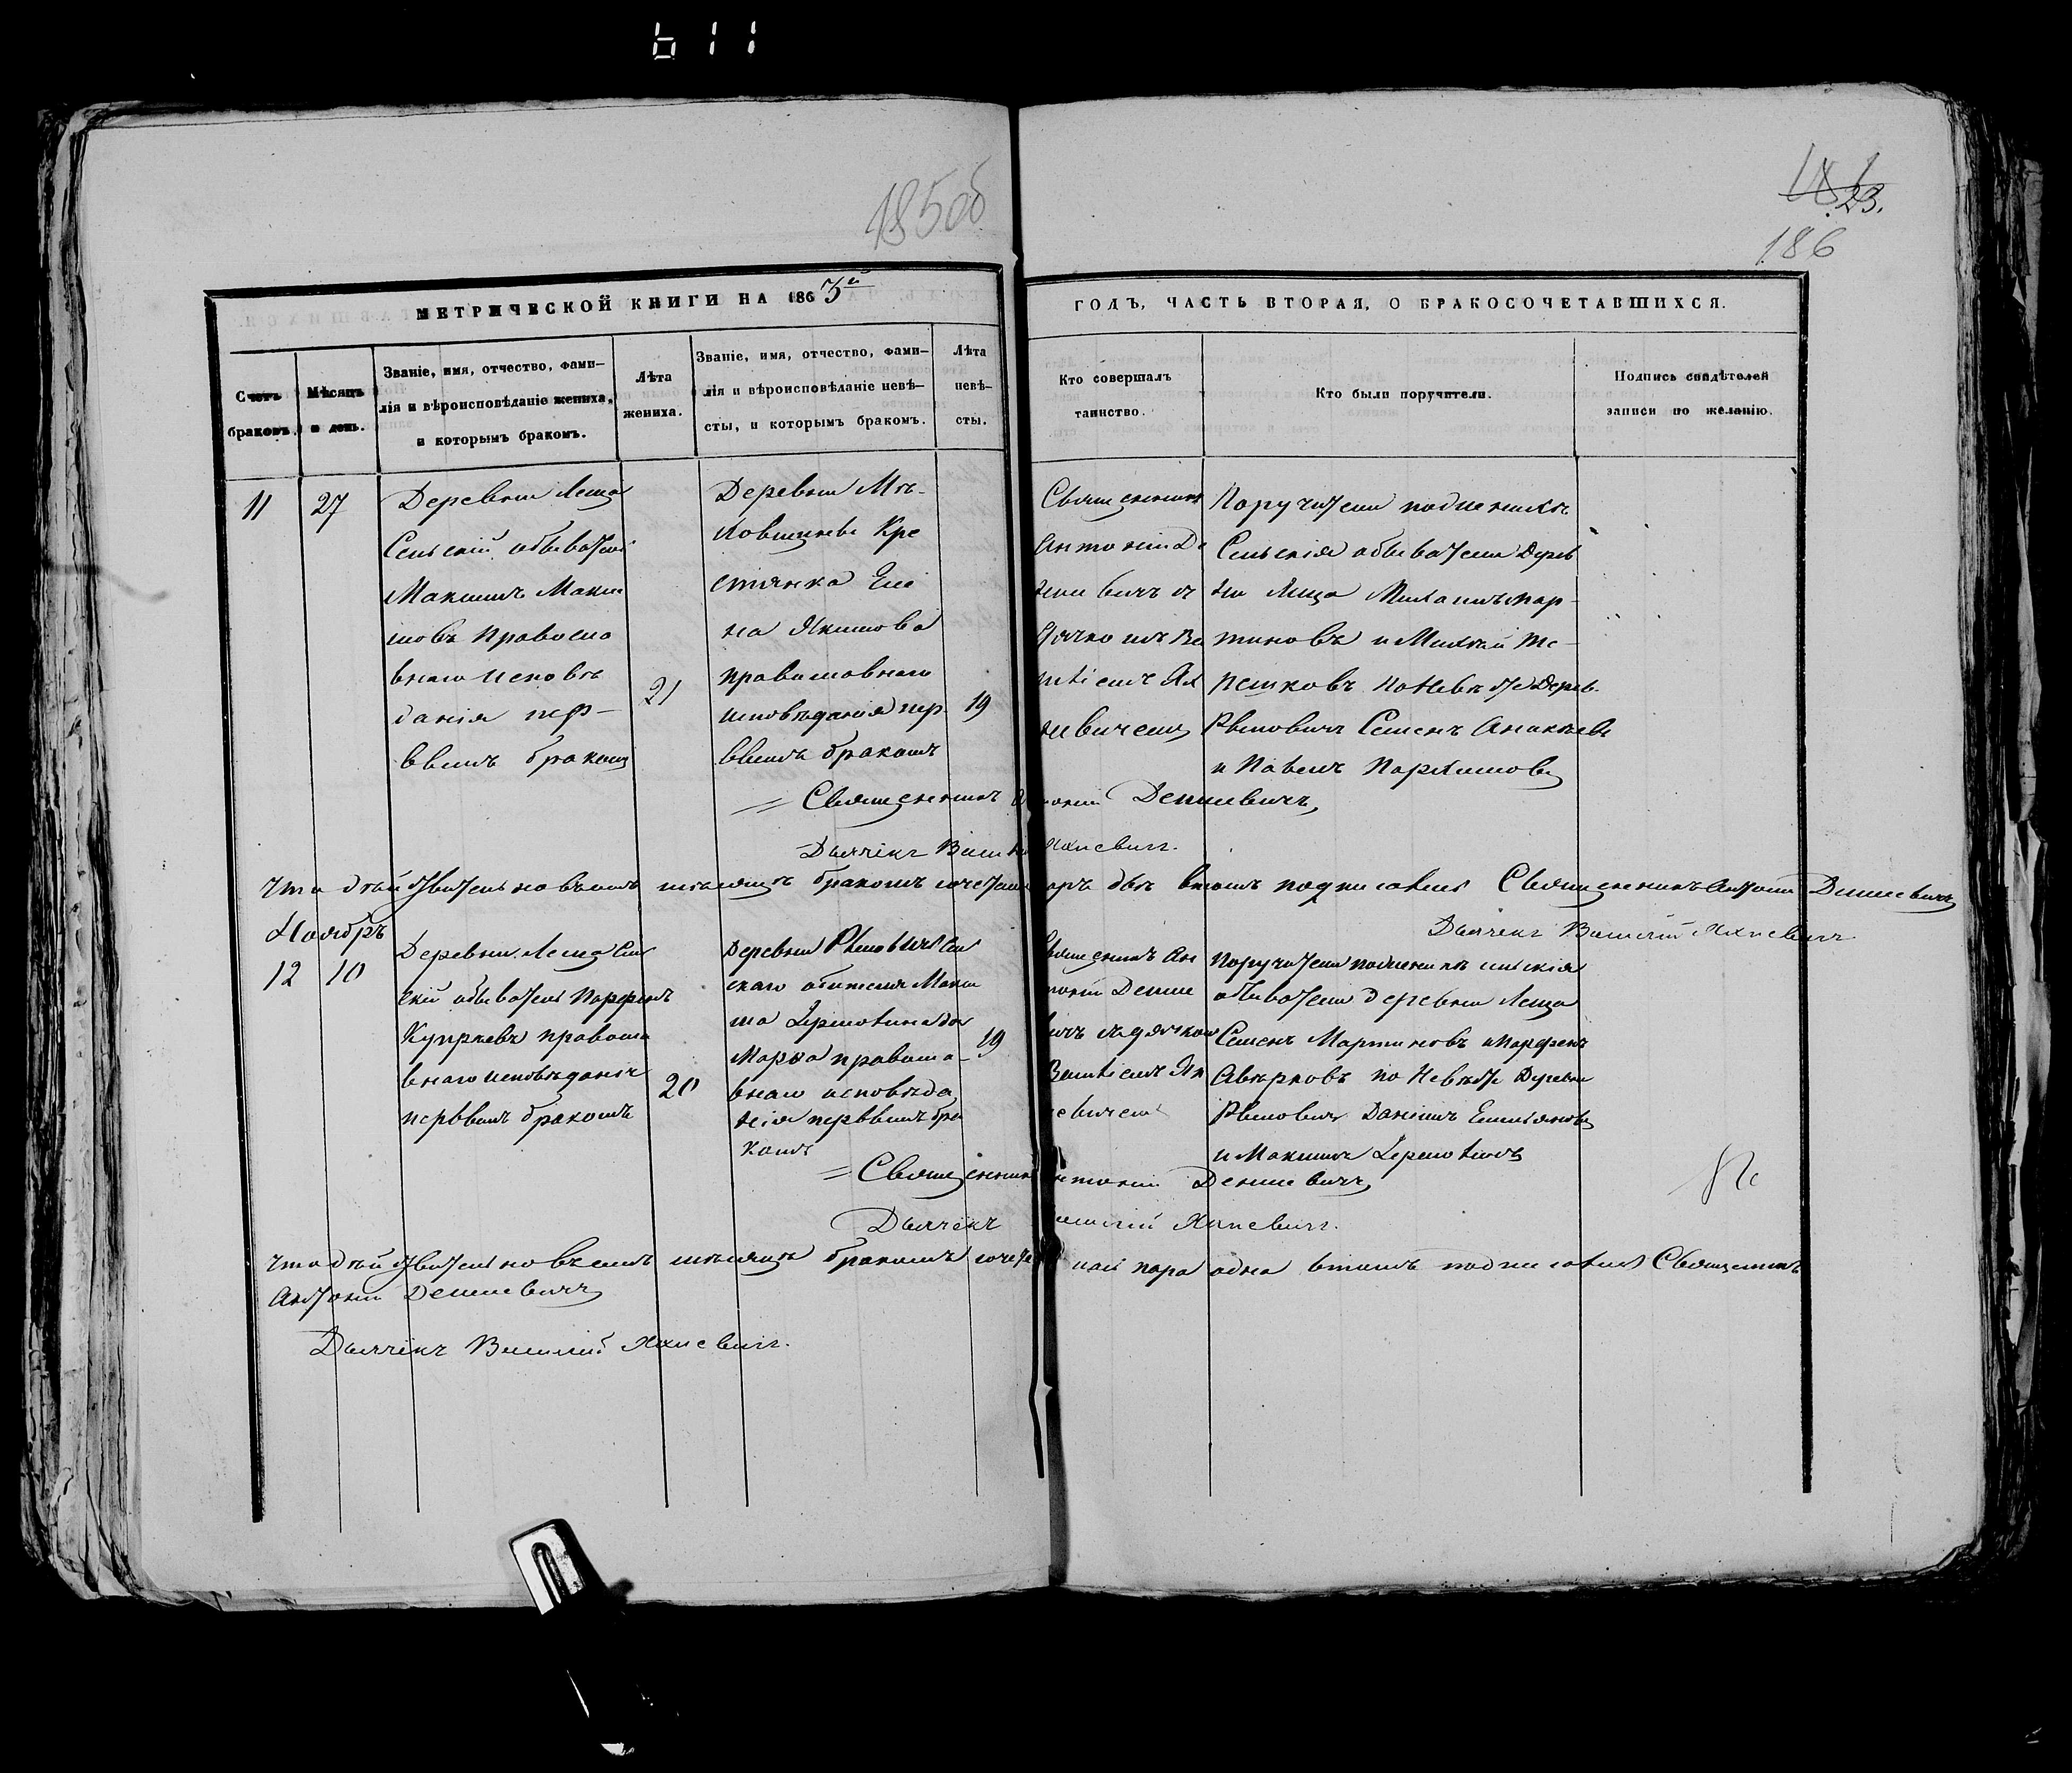 611
185об
181
23.
186
МЕТРИЧЕСКОЙ КНИГИ НА 1863й
ГОДЪ, ЧАСТЬ ВТОРАЯ, О БРАКОСОЧЕТАВШИХСЯ.
Счетъ
браковъ.
Мѣсяцъ
и день.
Званіе, имя, отчество, фами-
лія и вѣроисповѣданіе жениха,
и которымъ бракомъ.
Лѣта
жениха.
Званіе, имя, отчество, фами-
лія и вѣроисповѣданіе невѣ-
сты, и которымъ бракомъ.
Лѣта
невѣ-
сты.
Кто совершалъ
таинство.
Кто были поручители.
Подпись свидѣтелей
записи по желанію.
11
27
Деревни Леща
Сельскій обыватель
Максимъ Макси
мовъ Правосла
внаго исповѣ
данія пер-
ввымъ бракомъ
21
Деревни
Кре
стянка Еле
на Якимова
православнаго
исповѣданія пер-
ввымъ бракомъ
19
Священникъ
Антоній Де
шевичъ съ
Дячкомъ Ва
силіемъ Ях
невичемъ
Поручители по женихѣ
Сельскія обыватели Дерев
ни Леща Михаилъ Мар-
тиновъ и
по Невѣсте Дерев.
Рымовичъ Семенъ
и Павелъ Парѳимовъ
Священникъ Антоній Дешевичъ
Дьячекъ Василій Яхневичъ.
Что дѣйствительно въ семъ мѣсяцѣ бракомъ сочеталось паръ двѣ в томъ подписались Священникъ Антоній Дешевичъ
Дьячекъ Василій Яхневичъ
Ноябръ
12
10
Деревни Леща Сель
скій обыватель Парфенъ
Купрѣевъ правосла
внаго исповѣданія
первымъ бракомъ
20
Деревни Рымовичъ Сель
скаго обителя Макси
ма дочь
Марѳа правосла-
внаго исповѣда
нія перввымъ бра
комъ
19
Священникъ Ан
тоній Деше
вичъ съ дячком
Василіемъ Ях
невичемъ
Поручители по женихѣ сельскія
обыватели деревни Леща
Семенъ Мартиновъ и Парфенъ
Аверковъ по Невѣсте Деревни
Рымовичъ Даніилъ Емельяновъ
и Максимъ
Священникъ Антоній Дешевичъ
Дьячекъ Василій Яхневичъ.
Что дѣйствительно въ семъ мѣсяцѣ бракомъ сочеталась пара одна в томъ подписались Священникъ
Антоній Дешевичъ
Дьячекъ Василій Яхневичъ.